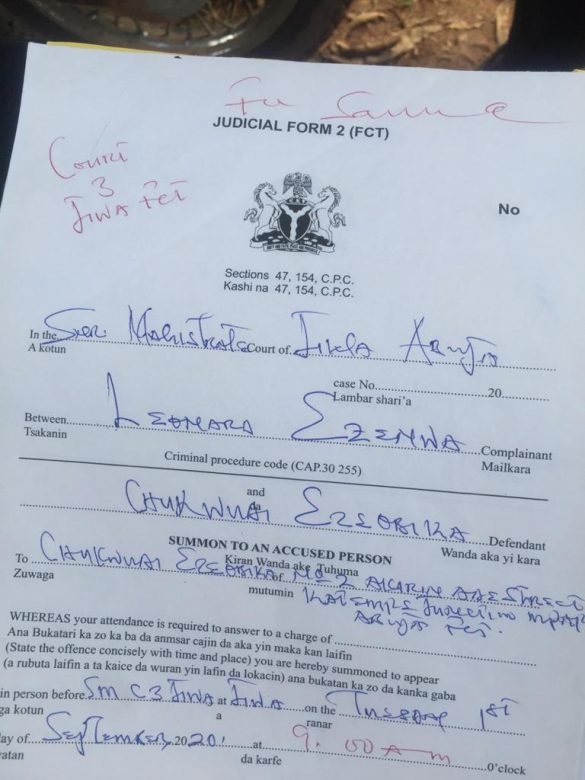 JUDICIAL FORM 2 (FCT)
Court
3
Jiwa FCT
No
Sections 47, 154, C.P.C.
Kashi na 47, 154, C.P.C.
In the Senr. Magistrate Court of Jiwa Abuja
A kotun
case No. 20
Lambar shari'a
Between Leonard Ezenwa Complainant
Tsakanin Mailkara
Criminal procedure code (CAP.30 255)
and
da
Chukwudi Ezeobika Defendant
Wanda aka yi kara
SUMMON TO AN ACCUSED PERSON
Kiran Wanda ake Tuhuma
To Chukwudi Ezeobika of No 2 Street
Zuwaga mutumin Katampe Junction
Abuja FCT.
WHEREAS your attendance is required to answer to a charge of
Ana Bukatari ka zo ka ba da anmsar cajin da aka yin maka kan laifin
(State the offence concisely with time and place) you are hereby summoned to appear
(a rubuta laifin a ta kaice da wuran yin lafin da lokacin) ana bukatan ka zo da kanka gaba
in person before Sm C3 Jiwa at Jiwa on the Tuesday 1st
ga kotun a ranar
ay of September, 2020 at 9.00am O'clock
watan da karfe